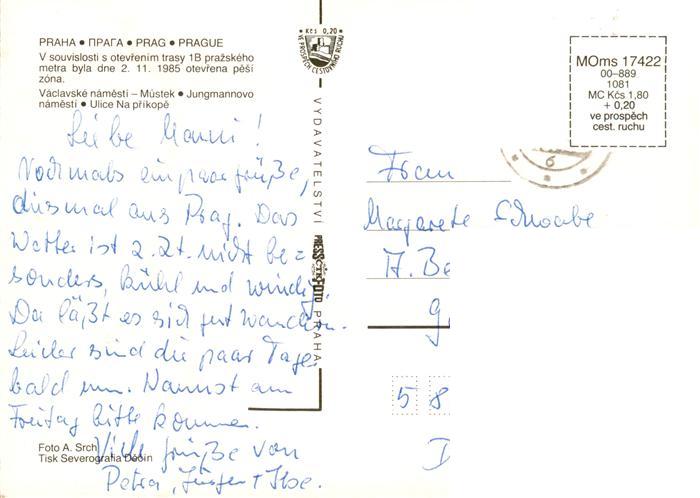 PRAHA ● ПРАГА ● PRAG ● PRAGUE
V souvislosti s otevřením trasy 1B pražského
metra byla dne 2. 11. 1985 otevřena pěší
zóna.
Václavské náměstí – Můstek ● Jungmannovo
náměstí ● Ulice Na příkopě
Liebe
Nochmals ein paar Grüße,
diesmal aus Prag. Das
Wetter ist z. Zt. nicht be=
sonders, kühl und windig.
Da läßt es sich gut wandern.
Leider sind die paar Tage
bald um. Kannst am
Freitag bitte kommen.
Viele Grüße von
Petra, Jürgen + Ilse.
Foto A. Srch
Tisk Severografia Děčín
Kčs 0,20
VE PROSPĚCH CESTOVNÍHO RUCHU
VYDAVATELSTVÍ PRESSFOTO PRAHA
ČTK
MOms 17422
00–889
1081
MC Kčs 1,80
+ 0,20
ve prospěch
cest. ruchu
6
Frau
Margarete Schwabe
A. Be
g
5 8
D